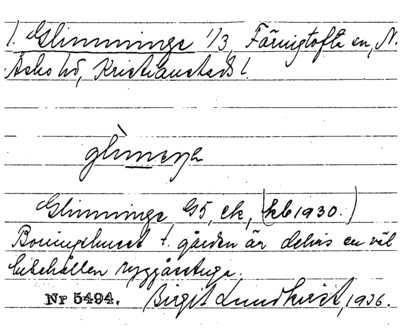 1. Glimminge 1/3, Färingtofta sn, N.
Åsbo hd, Kristianstads l.
glìmeŋa
Glimminge G5, ek, (kb 1930.)
Boningshuset t. gården är delvis en väl
bibehållen ryggåsstuga.
Nr 5494. Birgit Lundkvist, 1936.